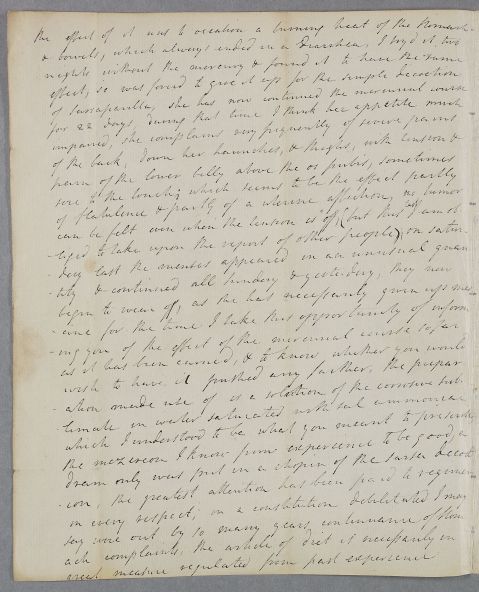 the effect of it was to occasion a burning heat of the Stomach
& bowels, which always ended in a diarrhea, I try'd it two
nights without the mercury & found it to have the same
effect, so was forced to give it up for the simple decoction
of sarsaparilla, she has now continued the mercurial course
for 22 days, during that time I think her appetite much
impaired, she complains very frequently of severe pains
of the back, down her haunches, & thighs, with tension &
pain of the lower belly above the os pubis, sometimes
sore to the touch; which seems to be the effect partly
of flatulence & partly of a uterine affection, no tumor
can be felt even when the tension is off (but this I am ob
-liged to take upon the report of other people) on satur
-day last the menses appeared in an unusual quan
-tity & continued all sunday & yesterday, they now
begin to wear off, as she has necessarily given up medi
-cine for the time I take this opportunity of inform
-ing you of the effect of the mercurial course so far
as it has been carried, & to know whether you would
wish to have it pushed any farther, the prepar
-ation made use of is a solution of the corrosive sub
-limate in water saturated with sal ammoniac
which I understood to be what you meant to prescribe
the mezereon I know from experience to be good, a
dram only was put in a chopin of the sarsa decoct
-ion, the greatest attention has been paid to regimen
in every respect, on a constitution debilitated I may
say wore out by so many years continuance of stom
ach complaints, the article of diet is necessarily in
great measure regulated from past experience